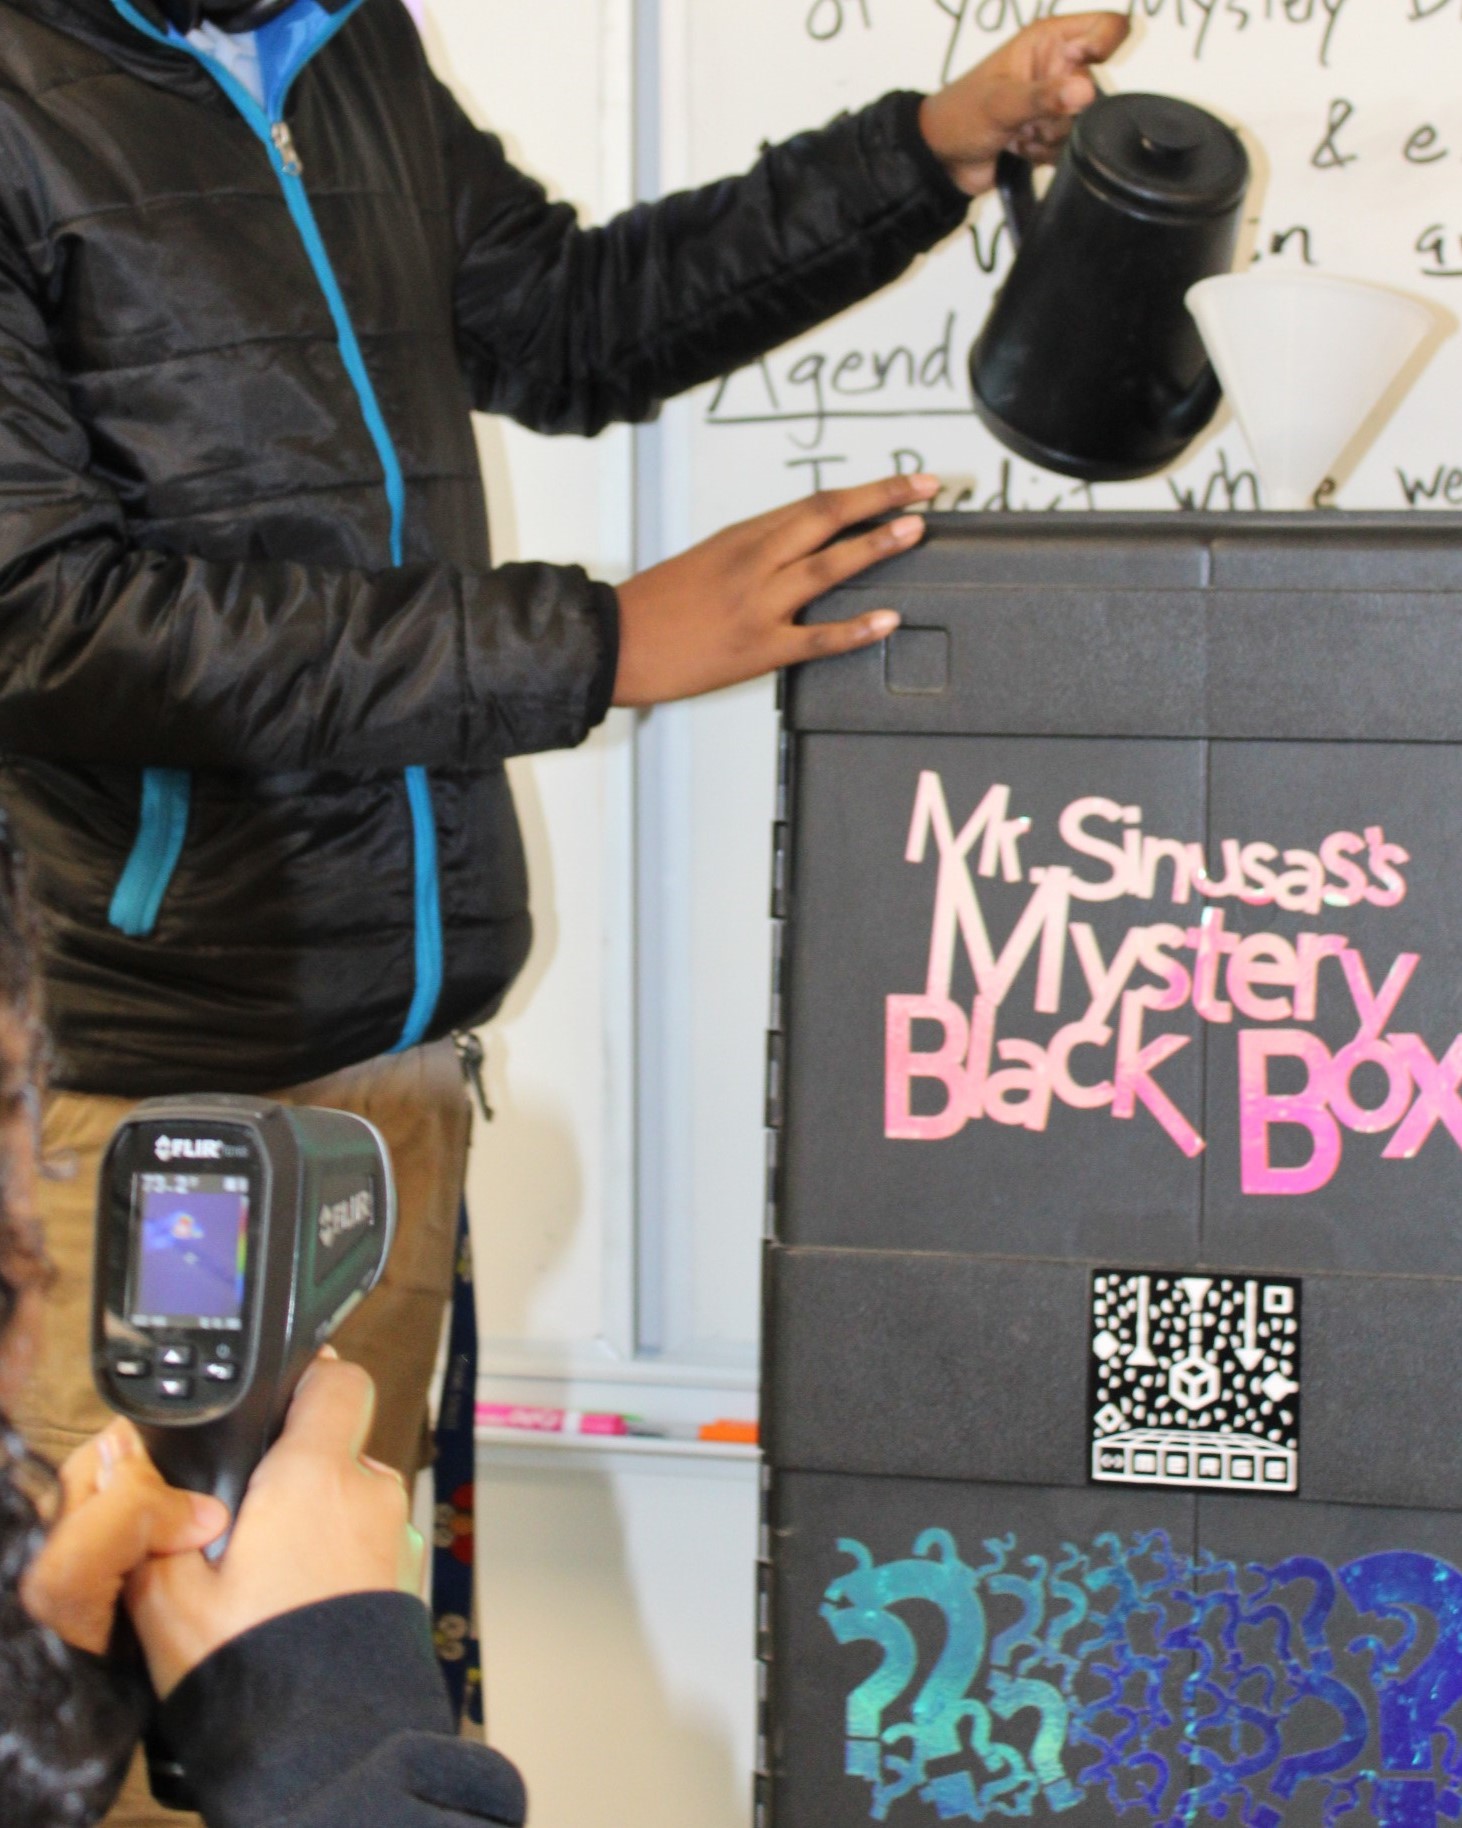 of your Mystery B
& e
in
Agend
I Predict wh e we
Mr. Sinusas's
Mystery
Black Box
FLIR
73.2°
FLIR
MERGE